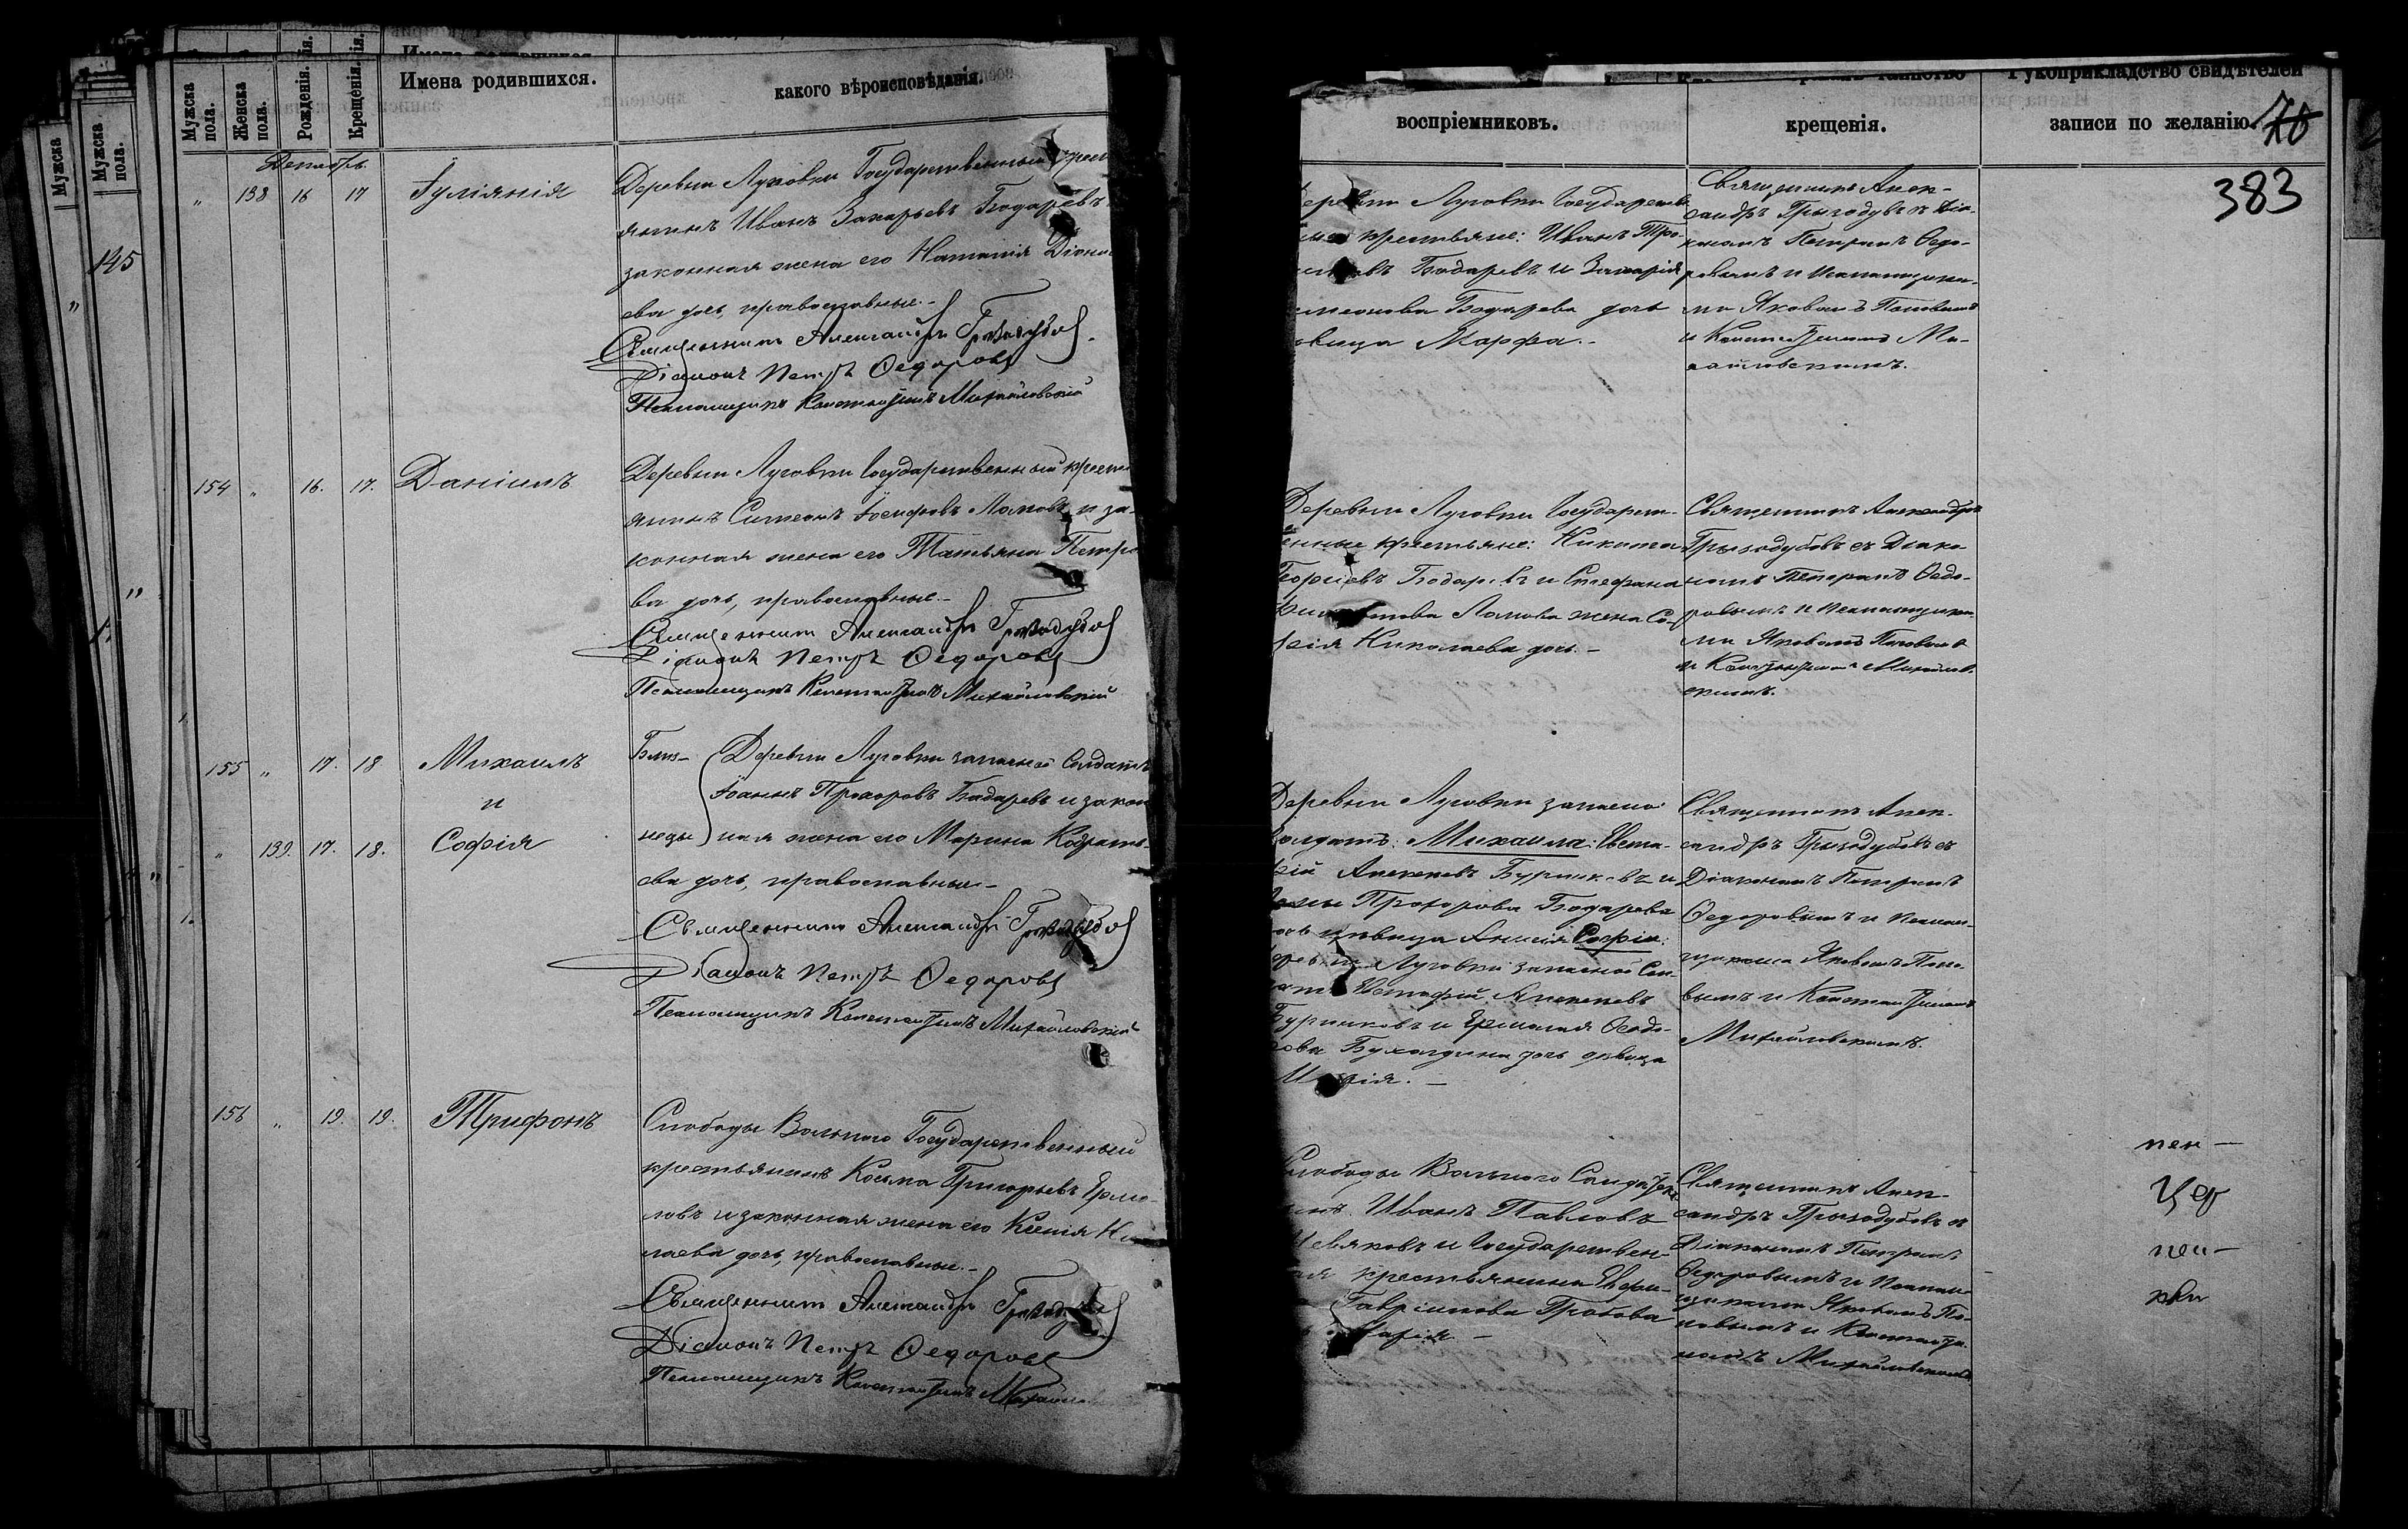 Мужска
Мужска пола.
145
"
"
Мужска пола.
Женска пола.
Рожденія.
Крещенія.
Имена родившихся.
какого вѣроисповѣданія.
Декабрь
" 138 16 17 Іуліянія
Деревни Луговки Государственный крест
янинъ Иванъ Захарьевъ Бодаревъ
законная жена его Наталія Діони
ева дочь, православные.-
Священникъ Александръ Грызодубов
Діаконъ Петръ Федоровъ
Псаломщикъ Константинъ Михайловскій
154 " 16. 17. Даніилъ
Деревни Луговки Государственный крест
янинъ Симеонъ Іосифовъ Ломовъ и за-
конная жена его Татьяна Петро
ва дочь, православные.-
Священникъ Александръ Грызодубов
Діаконъ Петръ Федоровъ
Псаломщикъ Константинъ Михайловскій
155 " 17. 18 Михаилъ
и
" 139. 17. 18. Софія
Близ- Деревни Луговки запасной Солдатъ
Іоаннъ Прохоровъ Бодаревъ и закон
нецы ная жена его Марина Кодрать-
ева дочь, православные-
Священникъ Александръ Грызодубов
Діаконъ Петръ Федоровъ
Псаломщикъ Константинъ Михайловскій
156 " 19. 19. Трифонъ
Слободы Вольного Государственный
крестьянинъ Косьма Григорьевъ Ермо-
ловъ и законная жена его Ксенія Ни
лаева дочь, православные.-
Священникъ Александръ Грызодуб
Діаконъ Петръ Федоровъ
Псаломщикъ Константинъ Михайлов
воспріемниковъ.
крещенія.
Рукоприкладство свидѣтелей
записи по желанію.
70
383
Деревни Луговки Государств
крестьяне: Иванъ Тро-
Бодаревъ и Захарія
Симеонова Бодарева дочь
Марфа.-
Священникъ Алек-
сандръ Грызодубъ съ Діа-
кономъ Петромъ Федо-
ровымъ и псаломщика-
ми Яковомъ Поповымъ
и Константиномъ Ми-
хайловскимъ.
Деревни Луговки Государст-
венные крестьяне: Никита
Георгіевъ Бодаревъ и Стефана
Ломова жена Со-
фія Николаева дочь.-
Священникъ Александръ
Грызодубовъ съ Діако
номъ Петромъ Федо-
ровымъ и псаломщика-
ми Яковомъ Поповымъ
и Константиномъ Михайлов-
скимъ.
Деревни Луговки запасной
Солдатъ: Михаила: Евста-
фій Алексѣевъ Буринковъ и
Прохорова Бодарева
дочь дѣвица Анисія Софіи:
Деревни Луговки запасной Сол-
датъ Евстафій Алексѣевъ
Буринковъ и Федо-
рова дочь дѣвица
Марія.-
Священникъ Алек-
сандръ Грызодубовъ съ
Діакономъ Петромъ
Федоровымъ и псалом-
щиками Яковомъ Попо-
вымъ и Константиномъ
Михайловскимъ.
Слободы Вольного
Иванъ Павловъ
и Государствен-
ная крестьянина
Гавріилова Гробова
Марія -
Священникъ Алек-
сандръ Грызодубовъ съ
Діакономъ Петромъ
Федоровымъ и псалом-
щиками Яковомъ По-
повымъ и Константи-
номъ Михайловскимъ